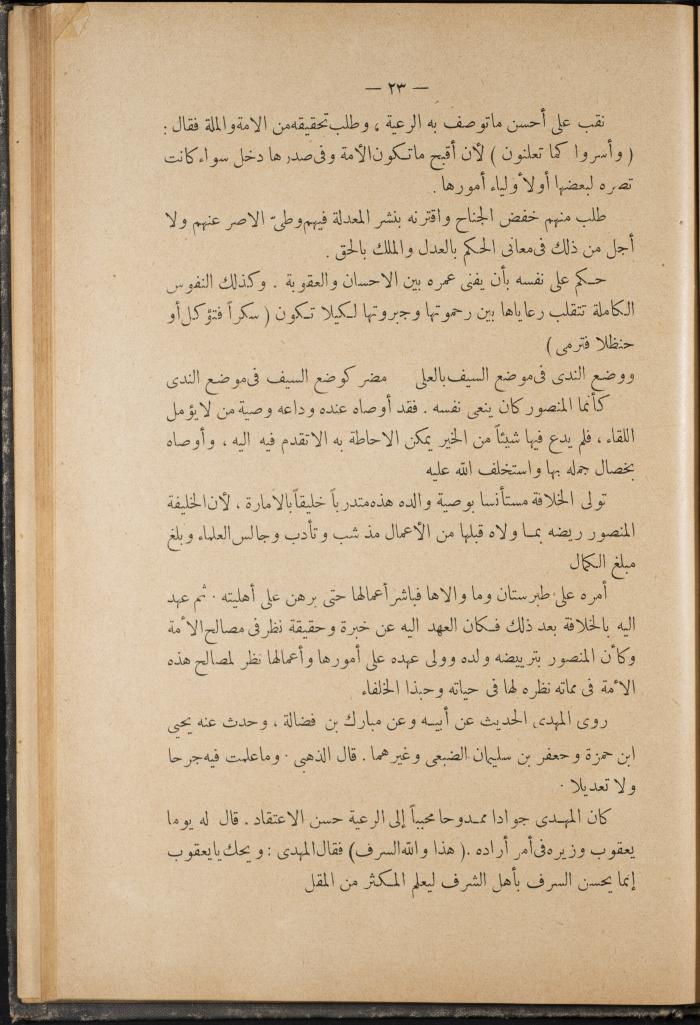 — ٢٣ —
نقب على أحسن ماتوصف به الرعية ، وطلب تحقيقه من الامة والملة فقال :
( وأسروا كما تعلنون ) لأن أقبح ماتكون الأمة وفى صدرها دخل سواء كانت
تصره لبعضها أولأولياء أمورها .
طلب منهم خفض الجناح واقترنه بنشر المعدلة فيهم وطىّ الاصر عنهم ولا
أجل من ذلك فى معانى الحكم بالعدل والملك بالحق .
حكم على نفسه بأن يفنى عمره بين الاحسان والعقوبة . وكذلك النفوس
الكاملة تتقلب رعاياها بين رحموتها وجبروتها لكيلا تكون ( سكراً فتؤكل أو
حنظلا فترمى )
ووضع الندى فى موضع السيف بالعلى مضر كوضع السيف فى موضع الندى
كأنما المنصور كان ينعى نفسه . فقد أوصاه عنده وداعه وصية من لا يؤمل
اللقاء ، فلم يدع فيها شيئاً من الخير يمكن الاحاطة به الا تقدم فيه اليه ، وأوصاه
بخصال جمله بها واستخلف الله عليه
تولى الخلافة مستأنسا بوصية والده هذه متدرباً خليقاً بالامارة ، لأن الخليفة
المنصور ريضه بما ولاه قبلها من الأعمال مذ شب وتأدب وجالس العلماء وبلغ
مبلغ الكمال
أمره على طبرستان وما والاها فباشر أعمالها حتى برهن على أهليته . ثم عهد
اليه بالخلافة بعد ذلك فكان العهد اليه عن خبرة وحقيقة نظر فى مصالح الأمة
وكأن المنصور بترييضه ولده وولى عهده على أمورها وأعمالها نظر لمصالح هذه
الأمة فى مماته نظره لها فى حياته وحبذا الخلفاء
روى المهدى الحديث عن أبيه وعن مبارك بن فضالة ، وحدث عنه يحيى
ابن حمزة وجعفر بن سليمان الضبعى وغيرهما . قال الذهبى . وماعلمت فيه جرحا
ولا تعديلا .
كان المهدى جوادا ممدوحا محبباً إلى الرعية حسن الاعتقاد . قال له يوما
يعقوب وزيره فى أمر أراده . ( هذا والله السرف ) فقال المهدى : ويحك يايعقوب
إنما يحسن السرف بأهل الشرف ليعلم المكثر من المقل